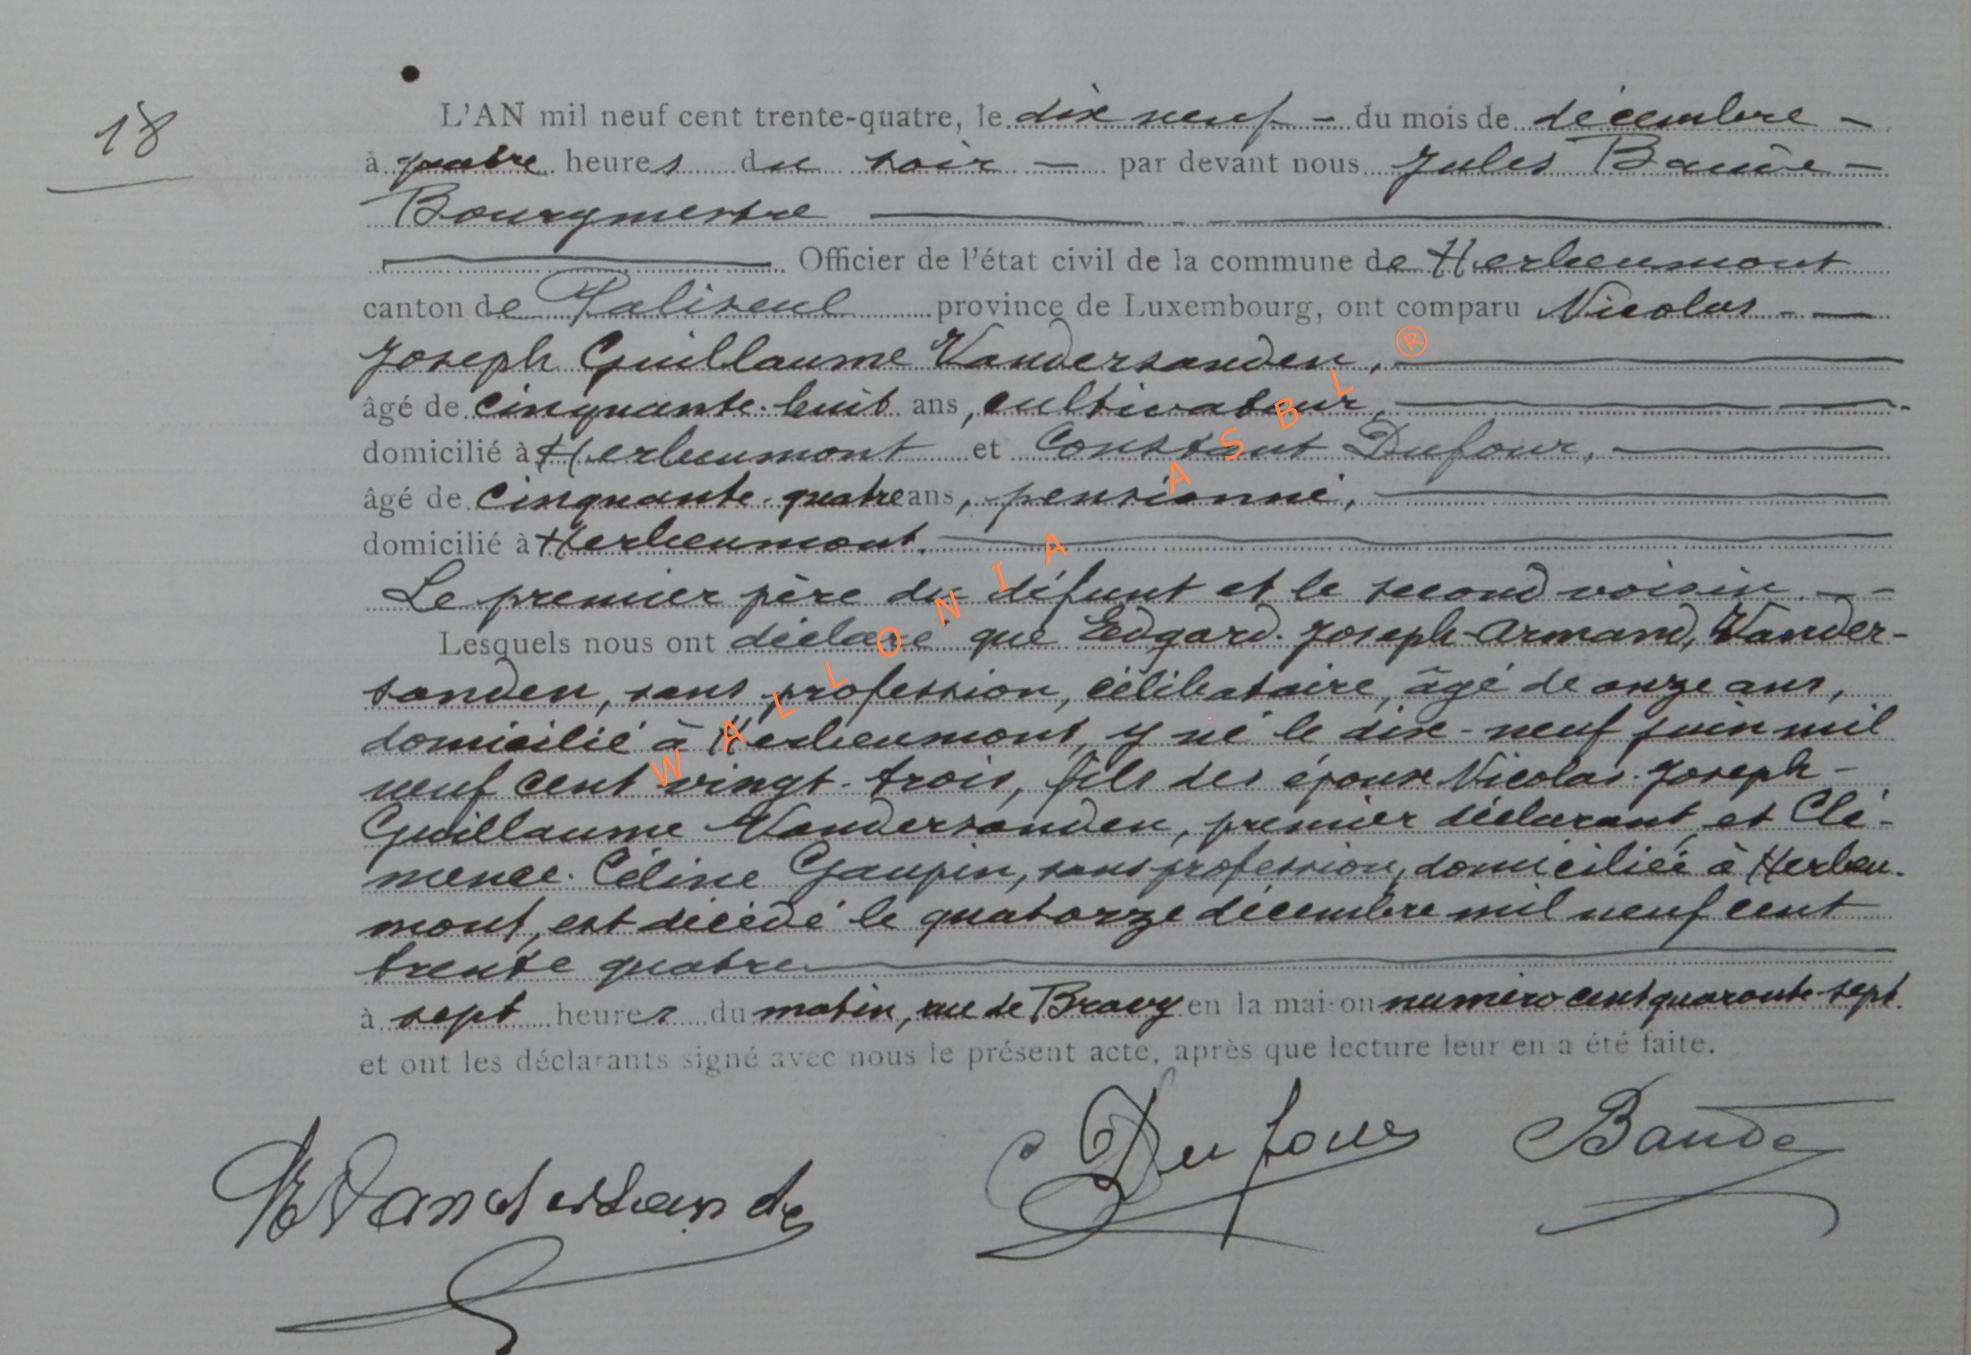 18
L'AN mil neuf cent trente-quatre, le dix neuf - du mois de décembre -
à quatre heures du soir - par devant nous Jules
Bourgmestre
Officier de l'état civil de la commune de Herbeumont
canton de Paliseul province de Luxembourg, ont comparu Nicolas
Joseph Guillaume Vandersanden,
âgé de cinquante-huit ans, cultivateur,
domicilié à Herbeumont et Constant Dufour,
âgé de cinquante-quatre ans, pensionné,
domicilié à Herbeumont.
Le premier père du défunt et le second voisin. - -
Lesquels nous ont déclaré que Edgard-Joseph-Armand, Vander-
sanden, sans profession, célibataire, âgé de onze ans,
domicilié à Herbeumont, y né le dix-neuf juin mil
neuf cent vingt-trois, fils des époux Nicolas-Joseph-
Guillaume Vandersanden, premier déclarant, et Clé-
mence-Céline Gaupin, sans profession, domiciliée à Herbeu-
mont, est décédé le quatorze décembre mil neuf cent
trente quatre
à sept heures du matin, rue de Bravy en la maison numéro cent quarante-sept.
et ont les déclarants signé avec nous le présent acte, après que lecture leur en a été faite.
N Vandersande C Dufour
WALLONIA ASBL ®